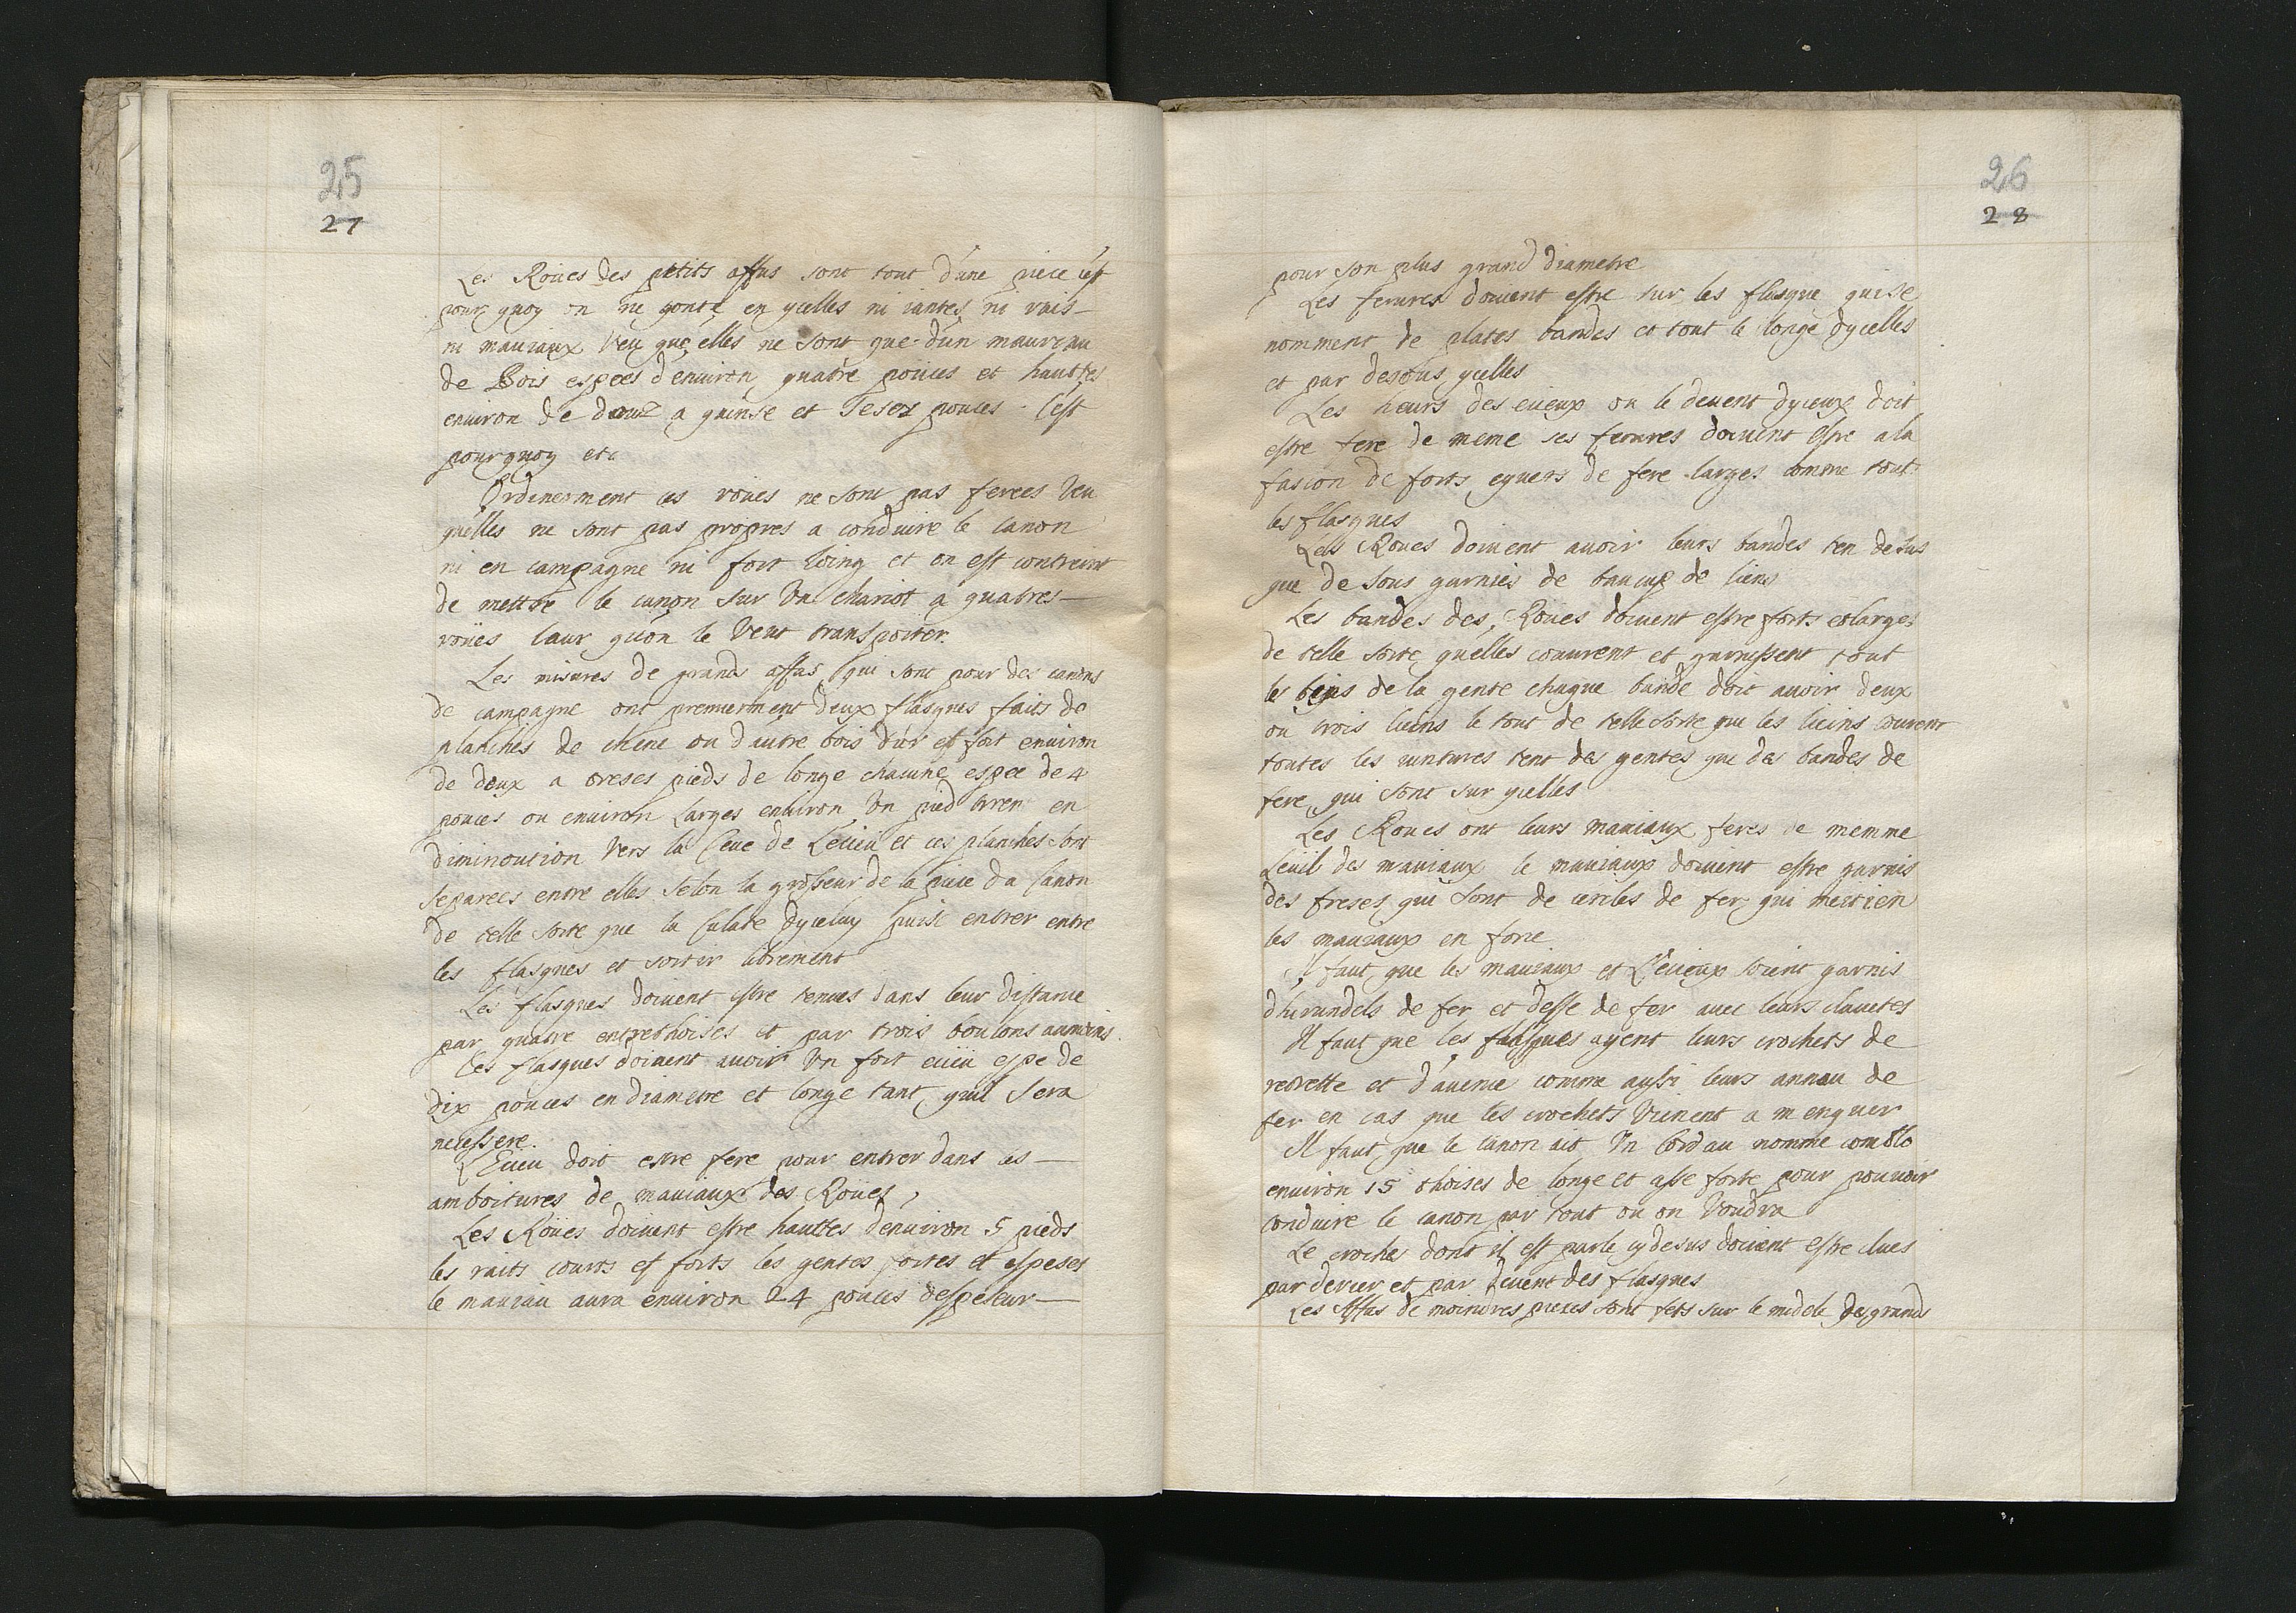 25
27
Les Roües des petits affus sont tout d'une piece c'est
pour quoy on ne conte en ycelles ni iantes ni rais
ni mauiaux veu que elles ne sont que d'un maurceau
de Bois espees d'enuiron quatre poüces et hauttes
enuiron de douz a quinse et sesez pouces. C'est
pourquoy etc
Ordinerment ces roües ne sont pas ferees veu
qu'elles ne sont pas propres a conduire le canon
ni en campagne ni fort loing et on est contreint
de mettre le canon sur un chariot a quatres
roües laur qu'on le veut transporter.
Les misures de grands affus qui sont pour des canons
de campagne ont premierment deux flasques faits de
planches de chene ou d'autre bois dur et fort enuiron
de deux a treses pieds de longe chacune espee de 4
pouces ou enuiron Larges enuiron un pied en
diminoution vers la de L'eüieu et ces planches sont
separees entre elles selon la groseur de la piece du Canon
de telle sorte que la Culate dyceluy puise entrer entre
les flasques et sortir librement
Les flasques doiuent estre tenues dans leur distance
par quatre entrethoises et par trois boulons aumoins.
les flasques doiuent auoir un fort euieu espe de
dix pouces en diametre et longe tant quil sera
necessere.
L'Euieu doit estre fere pour entrer dans les
amboitures de mauiaux des Roües,
Les Roües doiuent estre hauttes denuiron 5 pieds
les raits courts et forts les gentes fortes et espeses
le mauiau aura enuiron 24 pouces despeseur
26
28
pour son plus grand diametre
Les ferures doiuent estre sur les flasque qui se
nomment de plates bandes et tout le longe dycelles
et par desous ycelles
Les heurs des euieux ou le deuent dyceux doit
estre fere de meme ses ferures doiuent estre a la
fasion de forts equers de fere larges comme tout
les flasques
Les Roües doiuent auoir leurs bandes ten desus
que de sous garnies de baucup de liens
Les bandes des Roües doiuent estre forts et larges
de telle sorte quelles couurent et garnissent tout
les bois de la gente chaque bande doit auoir deux
ou trois liens le tout de telle sorte que les lieins couurent
toutes les iuntures tent des gentes que des bandes de
fere qui sont sur ycelles
Les Roues ont leurs mauiaux feres de memme
Leüil des mauiaux le mauiaux doiuent estre garnis
des freses qui sont de cercles de fer qui meitien
les mauiaux en force
Il faut que les mauiaux et L'euieux soient garnis
dhirundels de fer et desse de fer auec leurs clauetes
Il faut que les flasques ayent leurs crochets de
retrette et d'auence comme aussi leurs anneau de
fer en cas que les crochets vienent a menquer
Il faut que le canon ait un Cordau nomme comblo
enuiron 15 thoises de longe et asse forte pour pouuoir
conduire le canon par tout ou on voudra
Le croches dont il est parle cy desus doiuent estre clues
par derier et par deuent des flasques
Les Affus de moindres pieces sont fets sur le modele des grands